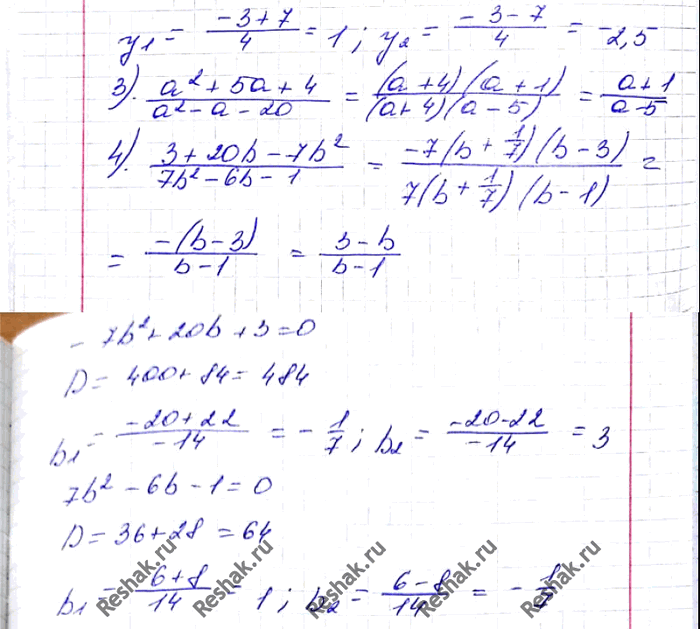 y₁ = (-3+7)/4 = 1 ; y₂ = (-3-7)/4 = -2,5
3). (a²+5a+4)/(a²-a-20) = ((a+4)(a+1))/((a+4)(a-5)) = (a+1)/(a-5)
4). (3+20b-7b²)/(7b²-6b-1) = (-7(b+1/7)(b-3))/(7(b+1/7)(b-1)) =
= (-(b-3))/(b-1) = (3-b)/(b-1)
-7b²+20b+3=0
D = 400+84 = 484
b₁ = (-20+22)/(-14) = -1/7 ; b₂ = (-20-22)/(-14) = 3
7b²-6b-1=0
D = 36+28 = 64
b₁ = (6+8)/14 = 1 ; b₂ = (6-8)/14 = -1/7
Reshak.ru Reshak.ru Reshak.ru Reshak.ru Reshak.ru